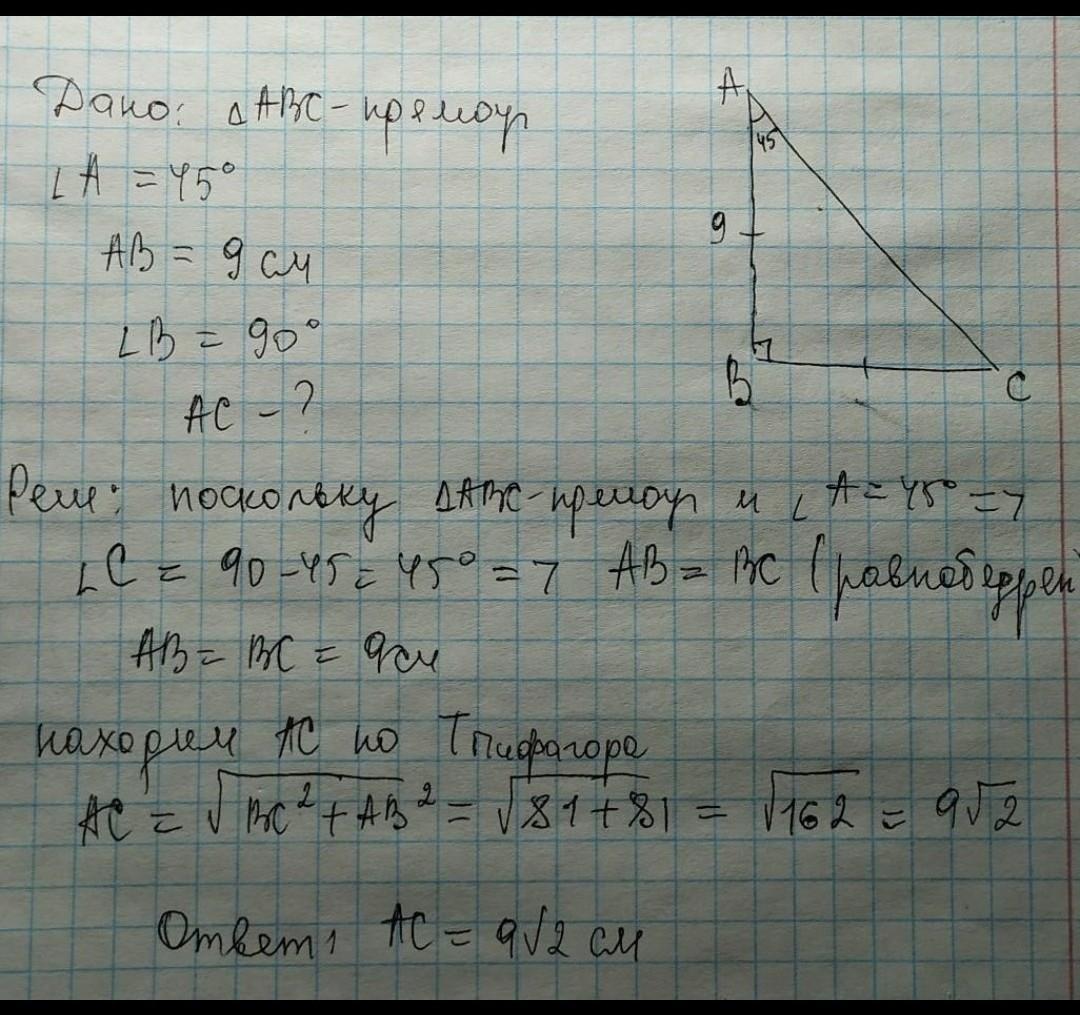 Дано: △ABC - прямоуг
∠A = 45°
AB = 9 см
∠B = 90°
AC - ?
A
45
9
B
C
Реш: поскольку △ABC - прямоуг и ∠A = 45° =>
∠C = 90 - 45 = 45° => AB = BC (равнобедрен)
AB = BC = 9 см
находим AC по Т Пифагора
AC = √BC² + AB² = √81 + 81 = √162 = 9√2
Ответ: AC = 9√2 см